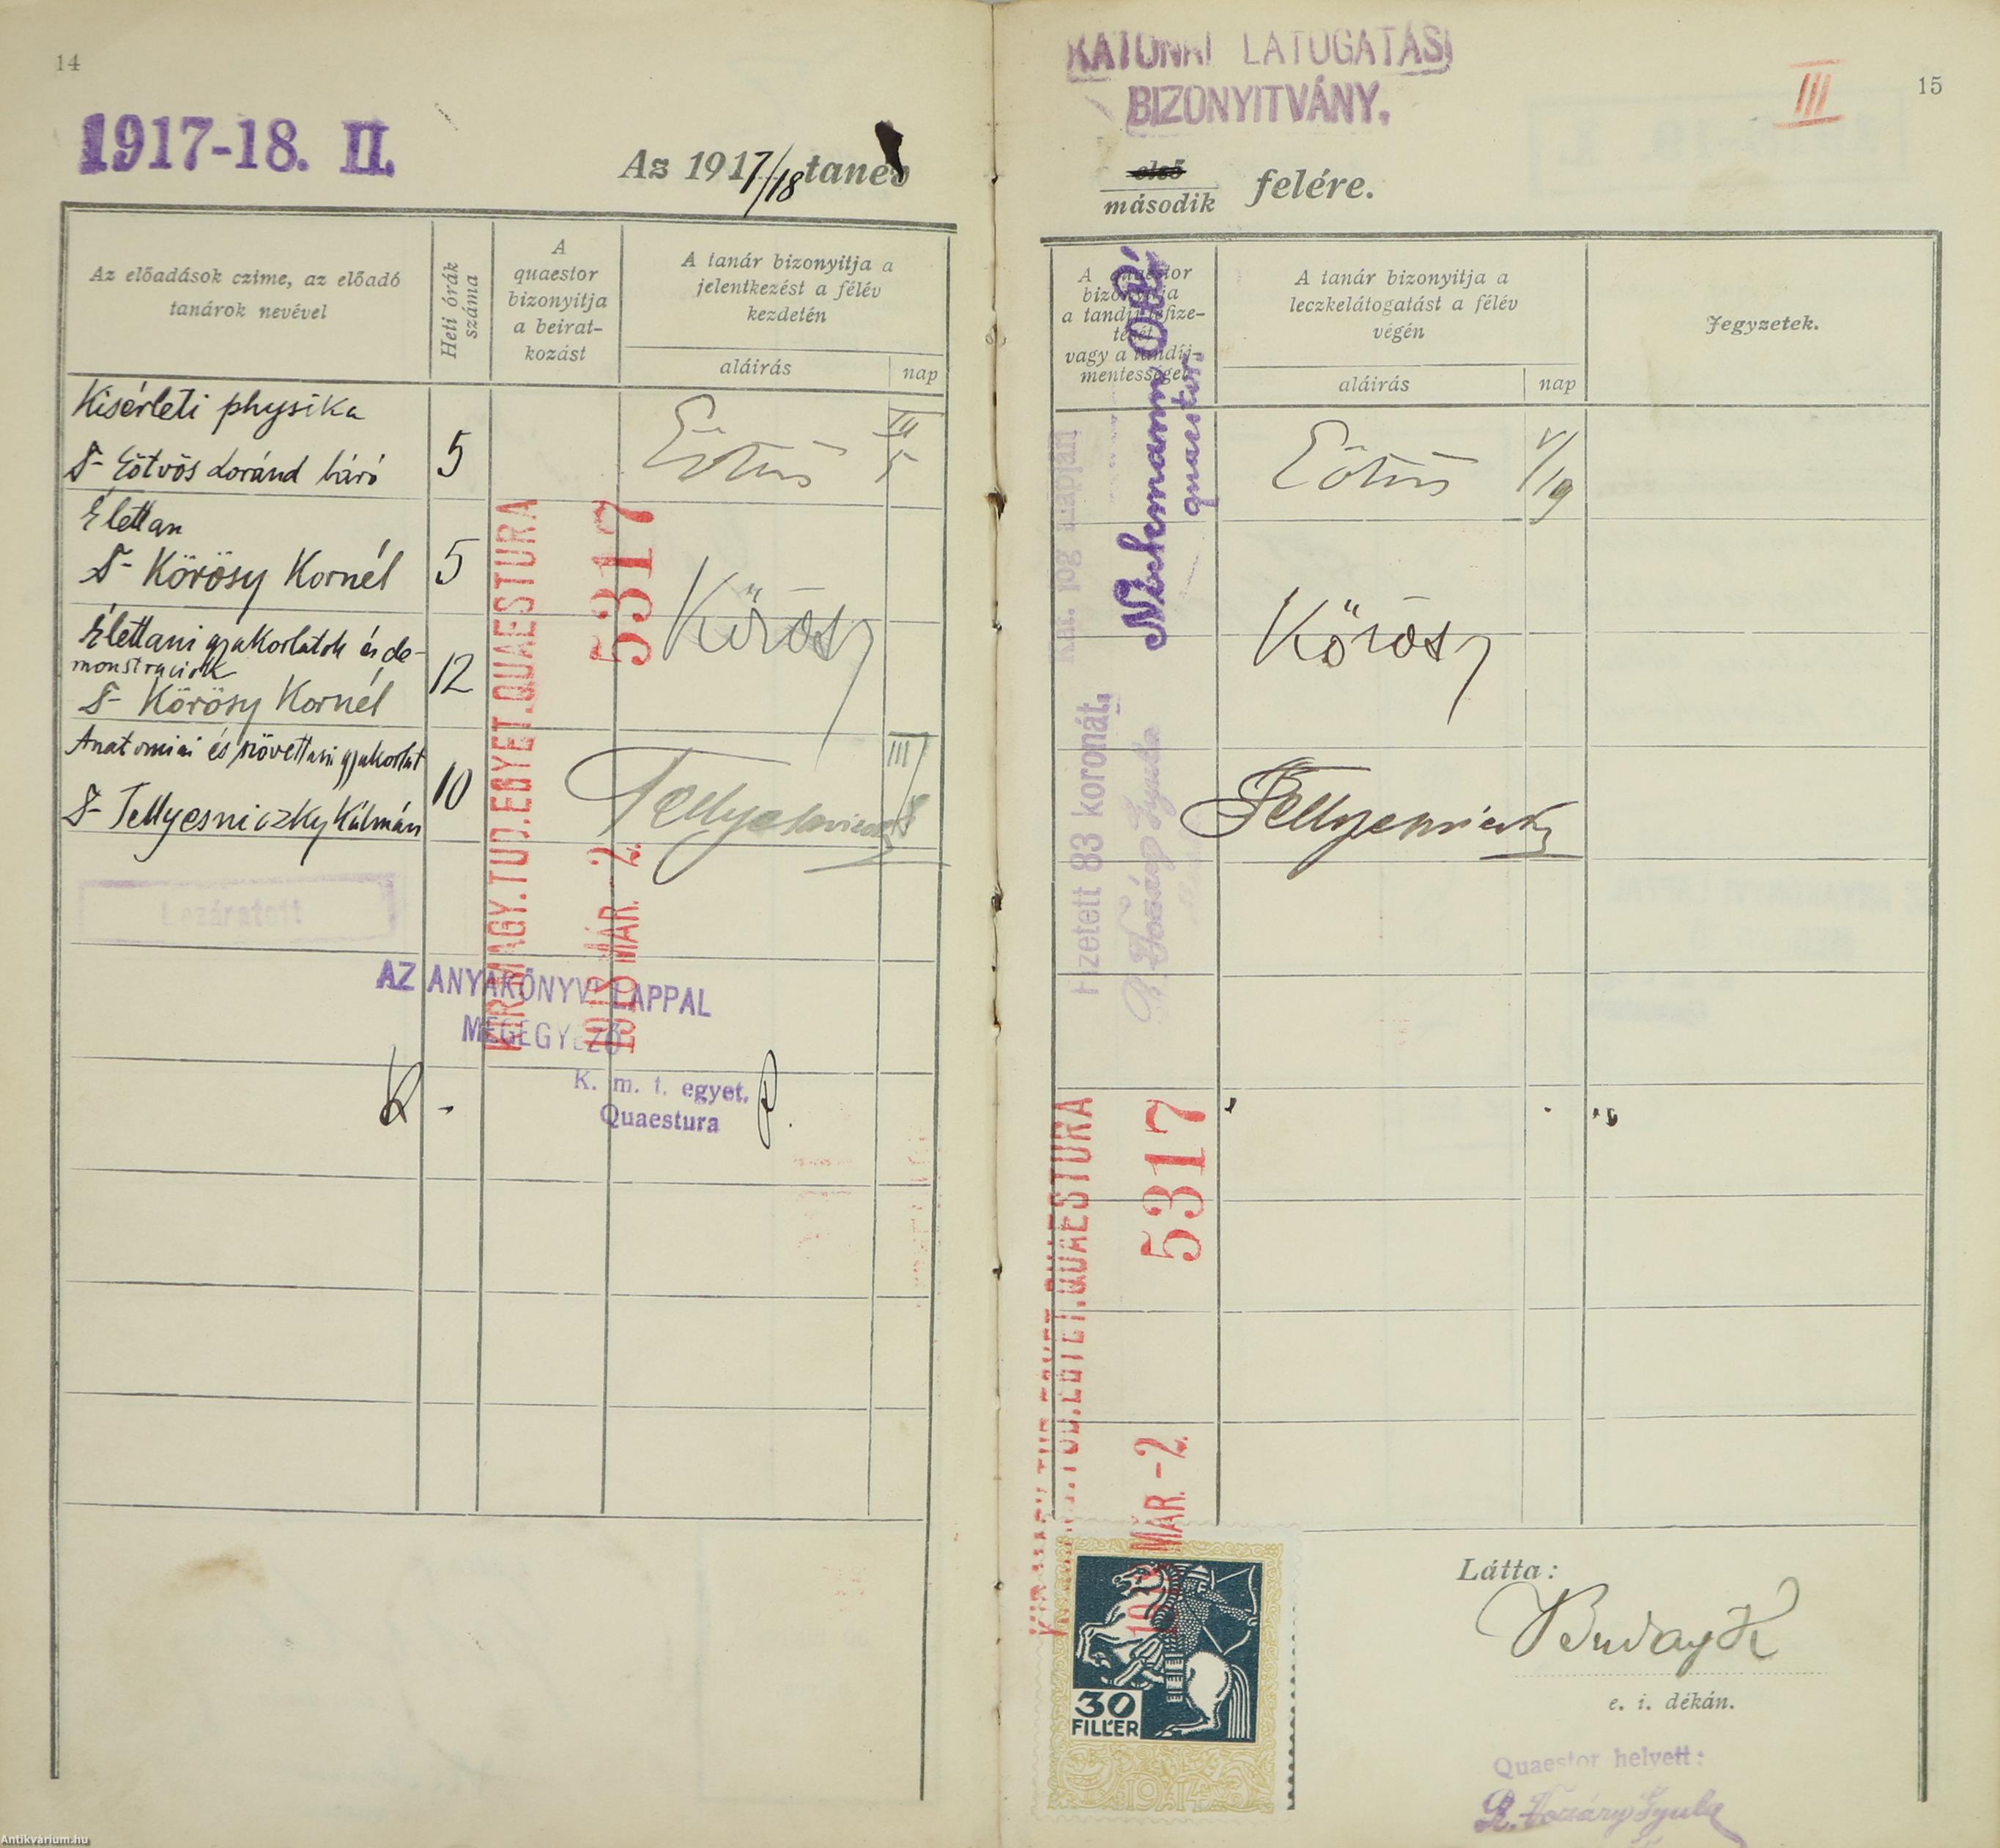 14
1917-18. II.
Az 1917/18 tanév
Az előadások czime, az előadó
tanárok nevével
Heti órák
száma
A
quaestor
bizonyitja
a beirat-
kozást
A tanár bizonyitja a
jelentkezést a félév
kezdetén
aláirás
nap
Kisérleti physika
Dr Eötvös Loránd báró
5
Eötvös
III
5
Élettan
Dr Körösy Kornél
5
Élettani gyakorlatok és de-
monstraciók
Dr Körösy Kornél
12
Körösy
Anatomiai és szövettani gyakorlat
Dr Tellyesniczky Kálmán
10
Tellyesniczky
III
KIR.MAGY.TUD.EGYET.QUAESTURA
5317
1918 MÁR. 2.
Lezáratott
AZ ANYAKÖNYVI LAPPAL
MEGEGYEZŐ
K. m. t. egyet.
Quaestura
KATONAI LÁTOGATÁSI
BIZONYITVÁNY.
III
15
első
második
felére.
A quaestor
bizonyitja
a tandij lefize-
tését
vagy a tandij-
mentességet
A tanár bizonyitja a
leczkelátogatást a félév
végén
aláirás
nap
Jegyzetek.
Eötvös
V/19
Körösy
Tellyesniczky
quaestor.
Fizetett 83 koronát.
KIR.MAGY.TUD.EGYET.QUAESTURA
5317
1918 MÁR. -2.
30
FILLÉR
1914
Látta:
Buday K
e. i. dékán.
Quaestor helyett:
Antikvárium.hu